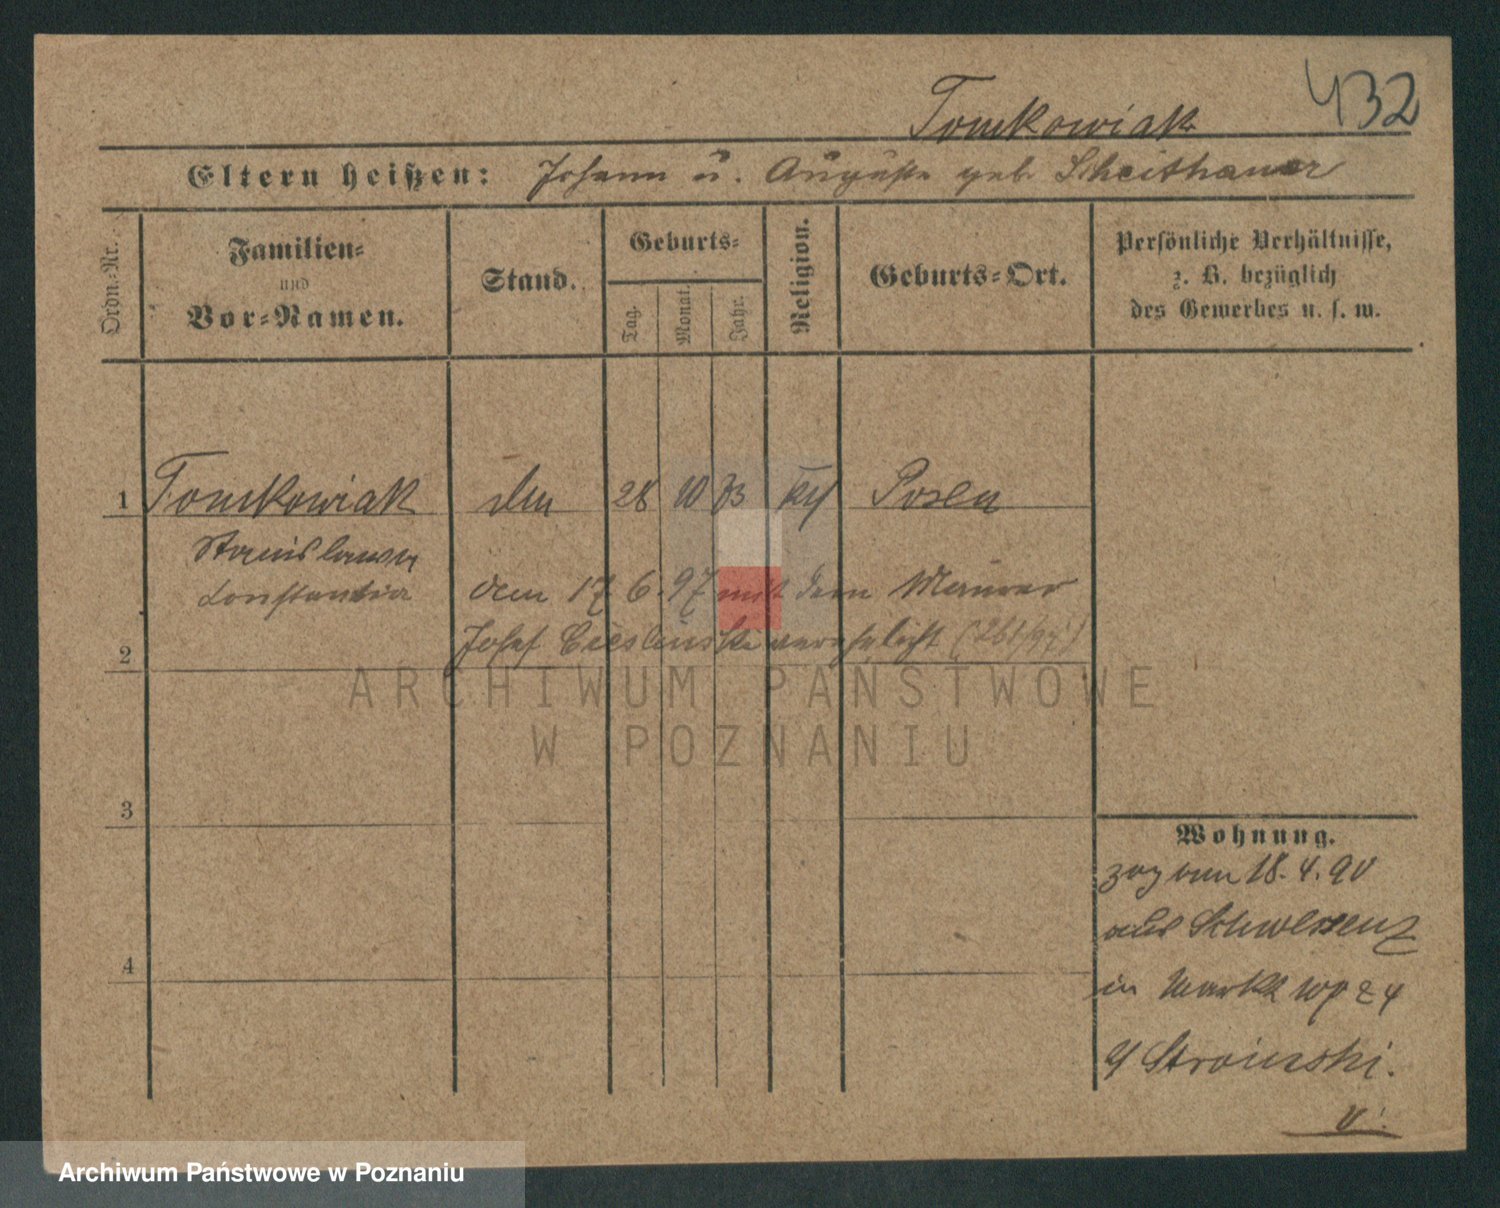 432
Tomkowiak
Eltern heißen: Johann u. Auguste geb. Scheithauer
Ordn.-Nr.
Familien-
und
Vor-Namen.
Stand.
Geburts-
Tag.
Monat.
Jahr.
Religion.
Geburts-Ort.
Persönliche Verhältnisse,
z. B. bezüglich
des Gewerbes u. s. w.
1 Tomkowiak 28 10 73 Posen
Stanislawa
Constantia
den 17. 6. 97 mit dem Maurer
Josef verehelicht (261/97)
2
3
4
Wohnung.
zog am 18. 4. 90
aus Schwersenz
in Markt 24
Stroinski.
ARCHIWUM PAŃSTWOWE
W POZNANIU
Archiwum Państwowe w Poznaniu